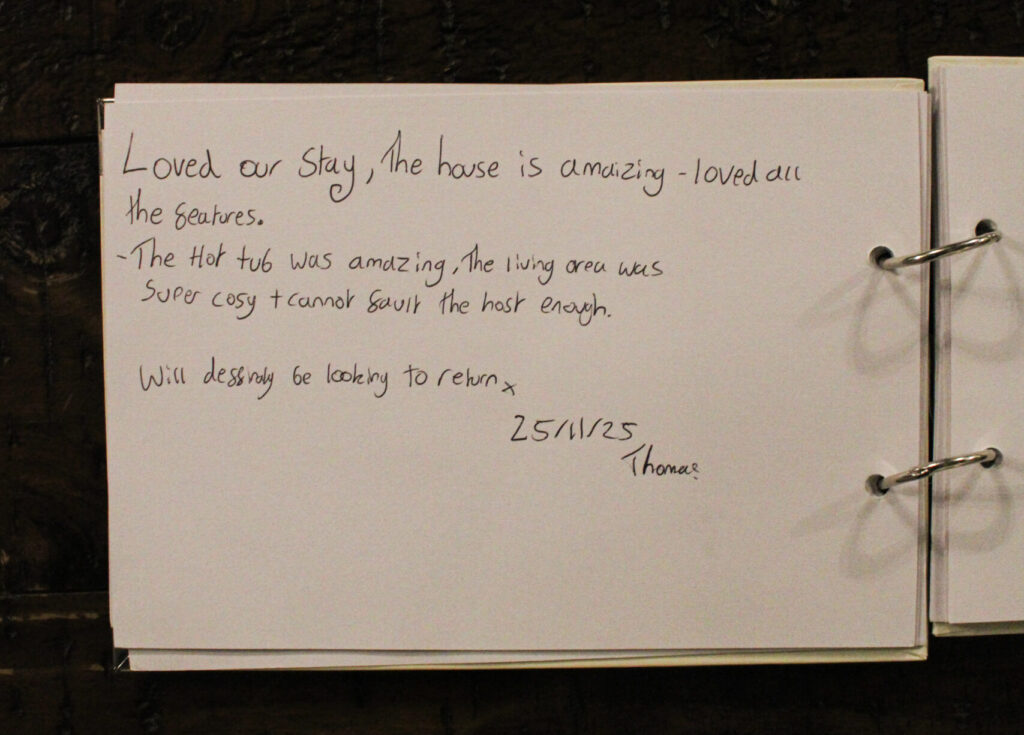 Loved our Stay, The house is amaizing - loved all
the features.
- The Hot tub was amazing, The living area was
Super cosy + cannot fault the host enough.
Will deffinaly be looking to return x
25/11/25
Thomas